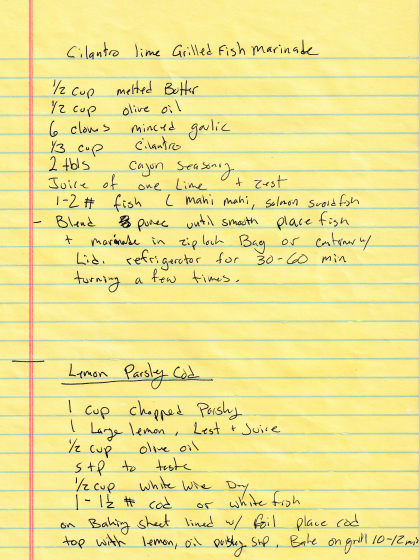 Cilantro lime Grilled Fish Marinade
1/2 cup melted Butter
1/2 cup olive oil
6 cloves minced garlic
1/3 cup cilantro
2 tbls cajon seasoning
Juice of one Lime + zest
1-2 # fish ( Mahi mahi, salmon swordfish
- Blend puree until smooth place fish
+ marinade in ziploch Bag or container w/
Lid. refrigerator for 30-60 min
turning a few times.
Lemon Parsley Cod
1 cup chopped Parsley
1 Large lemon, Zest + Juice
1/2 cup olive oil
s+p to taste
1/2 cup white wine Dry
1 - 1 1/2 # cod or white fish
on Baking sheet lined w/ foil place cod
top with lemon, oil parsley s+p. Bake on grill 10-12 min